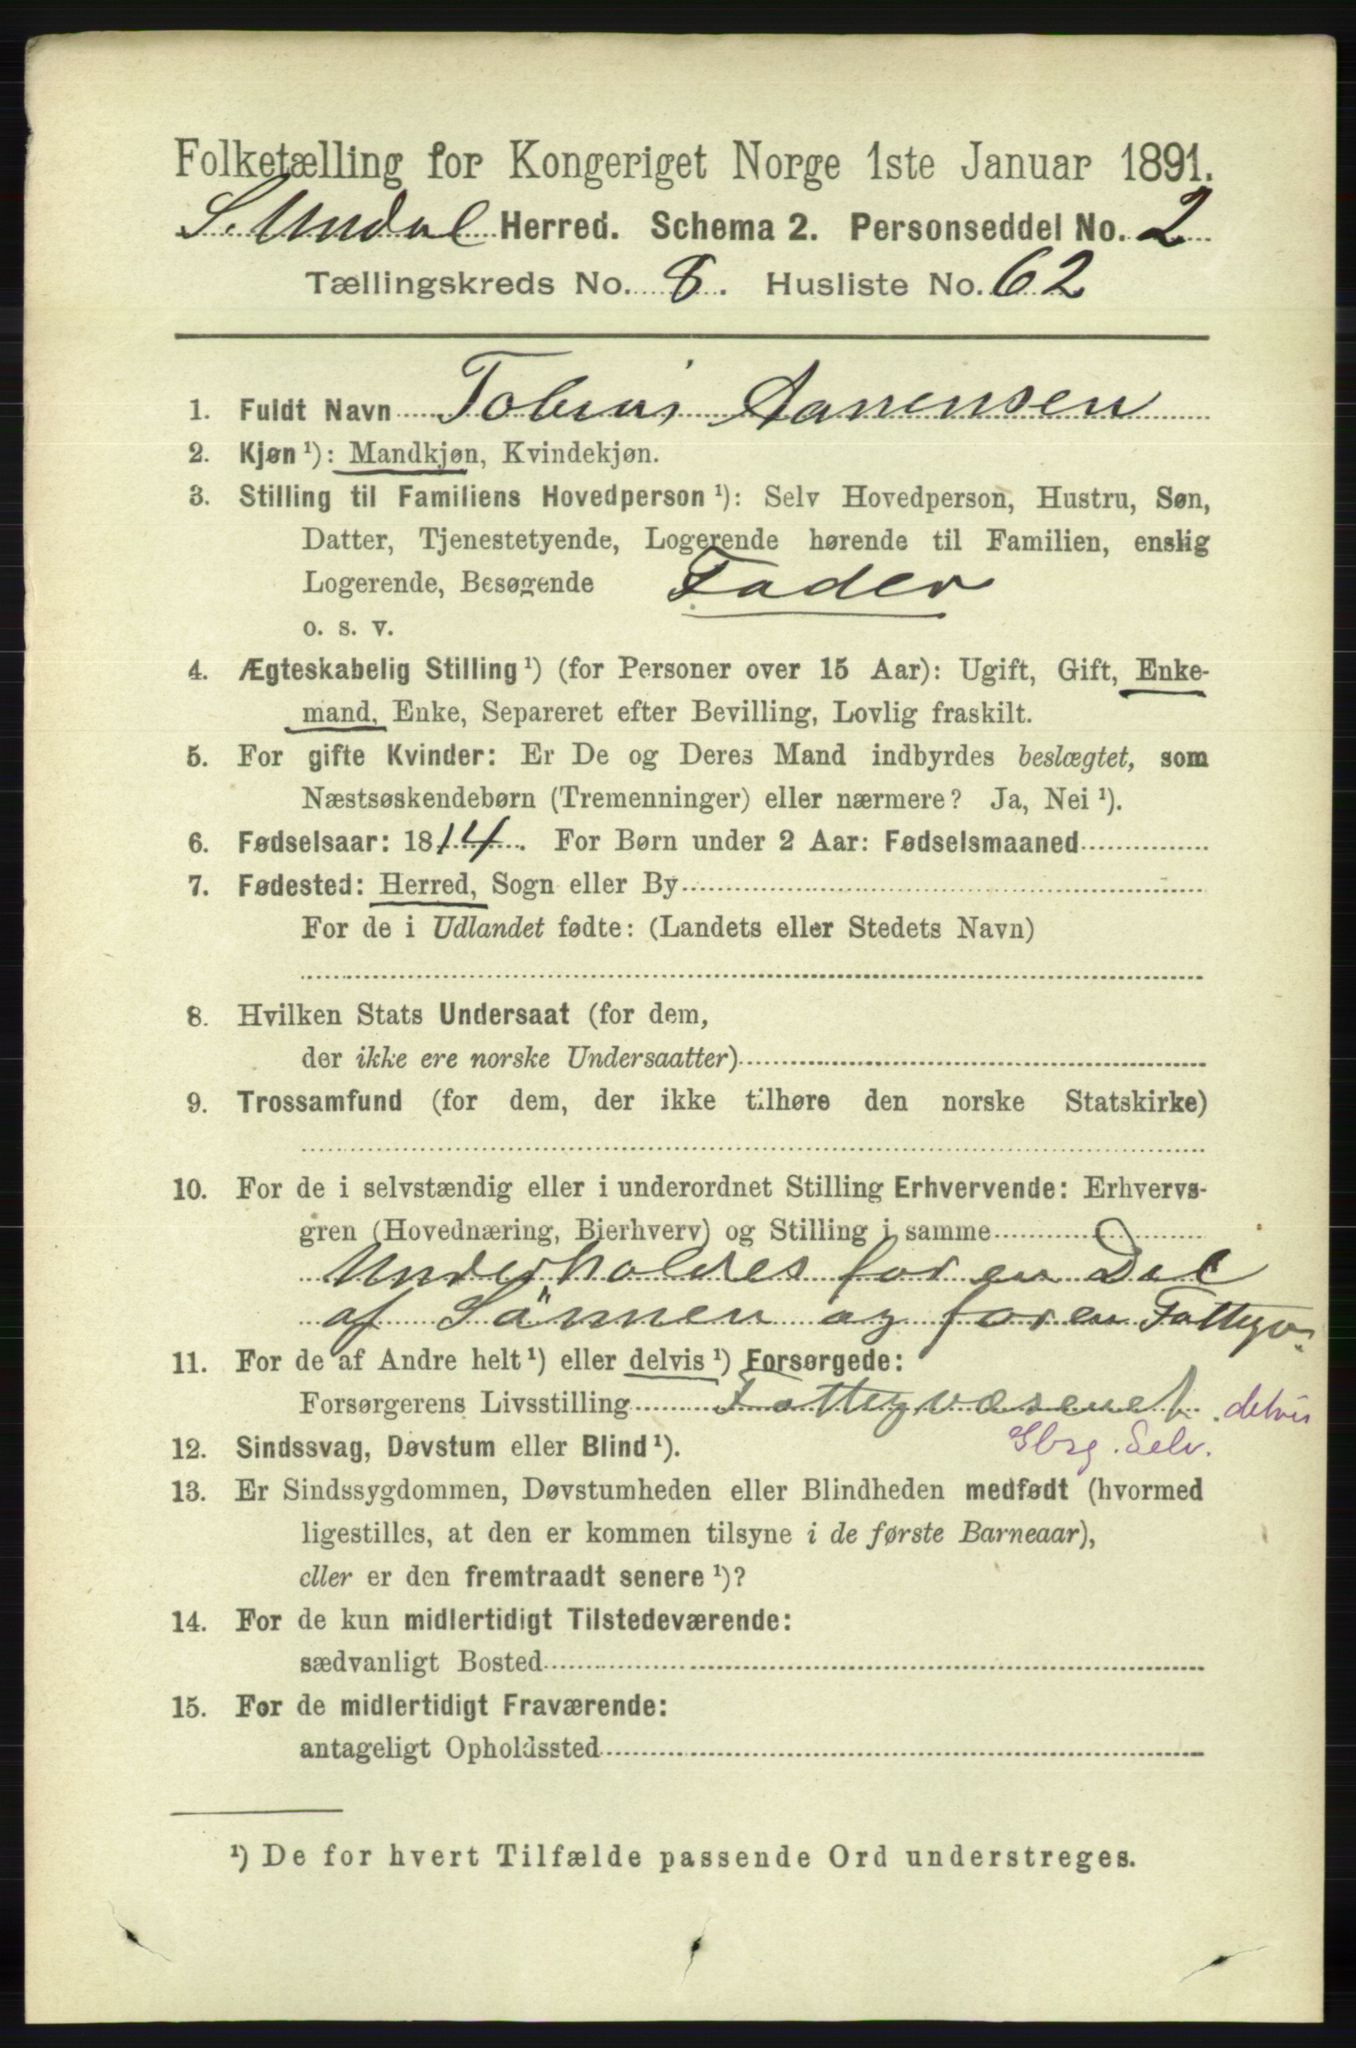 Folketælling for Kongeriget Norge 1ste Januar 1891.
S. Undal Herred. Schema 2. Personseddel No. 2
Tællingskreds No. 8. Husliste No. 62
1. Fuldt Navn Tobias Aanensen
2. Kjøn ¹): Mandkjøn, Kvindekjøn.
3. Stilling til Familiens Hovedperson ¹): Selv Hovedperson, Hustru, Søn,
Datter, Tjenestetyende, Logerende hørende til Familien, enslig
Logerende, Besøgende Fader
o. s. v.
4. Ægteskabelig Stilling ¹) (for Personer over 15 Aar): Ugift, Gift, Enke-
mand, Enke, Separeret efter Bevilling, Lovlig fraskilt.
5. For gifte Kvinder: Er De og Deres Mand indbyrdes beslægtet, som
Næstsøskendebørn (Tremenninger) eller nærmere? Ja, Nei ¹).
6. Fødselsaar: 1814. For Børn under 2 Aar: Fødselsmaaned
7. Fødested: Herred, Sogn eller By
For de i Udlandet fødte: (Landets eller Stedets Navn)
8. Hvilken Stats Undersaat (for dem,
der ikke ere norske Undersaatter)
9. Trossamfund (for dem, der ikke tilhøre den norske Statskirke)
10. For de i selvstændig eller i underordnet Stilling Erhvervende: Erhvervs-
gren (Hovednæring, Bierhverv) og Stilling i samme
Underholdes for en Del
af Sönnen og for en Fattigv.
11. For de af Andre helt ¹) eller delvis ¹) Forsørgede:
Forsørgerens Livsstilling Fattigvæsenet delvis
Gbrg. Selv.
12. Sindssvag, Døvstum eller Blind ¹).
13. Er Sindssygdommen, Døvstumheden eller Blindheden medfødt (hvormed
ligestilles, at den er kommen tilsyne i de første Barneaar),
eller er den fremtraadt senere ¹)?
14. For de kun midlertidigt Tilstedeværende:
sædvanligt Bosted
15. For de midlertidigt Fraværende:
antageligt Opholdssted
¹) De for hvert Tilfælde passende Ord understreges.